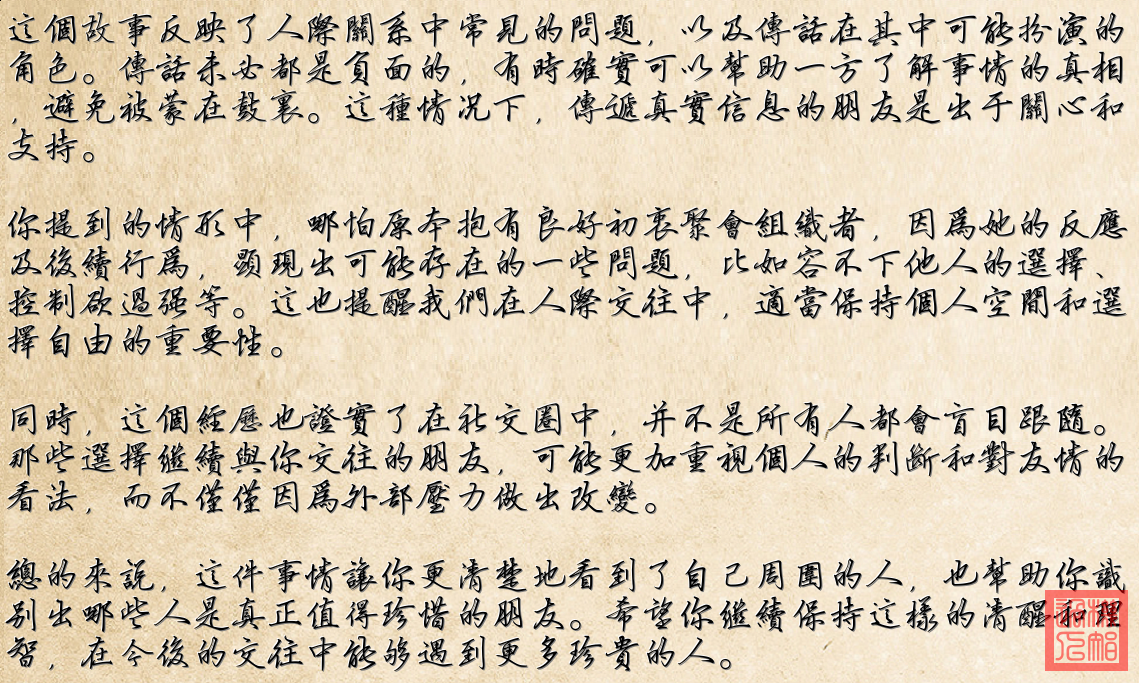 這個故事反映了人際關系中常見的問題，以及傳話在其中可能扮演的
角色。傳話未必都是負面的，有時確實可以幫助一方了解事情的真相
，避免被蒙在鼓裏。這種情況下，傳遞真實信息的朋友是出于關心和
支持。
你提到的情形中，哪怕原本抱有良好初衷聚會組織者，因爲她的反應
及後續行爲，顯現出可能存在的一些問題，比如容不下他人的選擇、
控制欲過强等。這也提醒我們在人際交往中，適當保持個人空間和選
擇自由的重要性。
同時，這個經歷也證實了在社交圈中，并不是所有人都會盲目跟隨。
那些選擇繼續與你交往的朋友，可能更加重視個人的判斷和對友情的
看法，而不僅僅因爲外部壓力做出改變。
總的來説，這件事情讓你更清楚地看到了自己周圍的人，也幫助你識
別出哪些人是真正值得珍惜的朋友。希望你繼續保持這樣的清醒和理
智，在今後的交往中能够遇到更多珍貴的人。